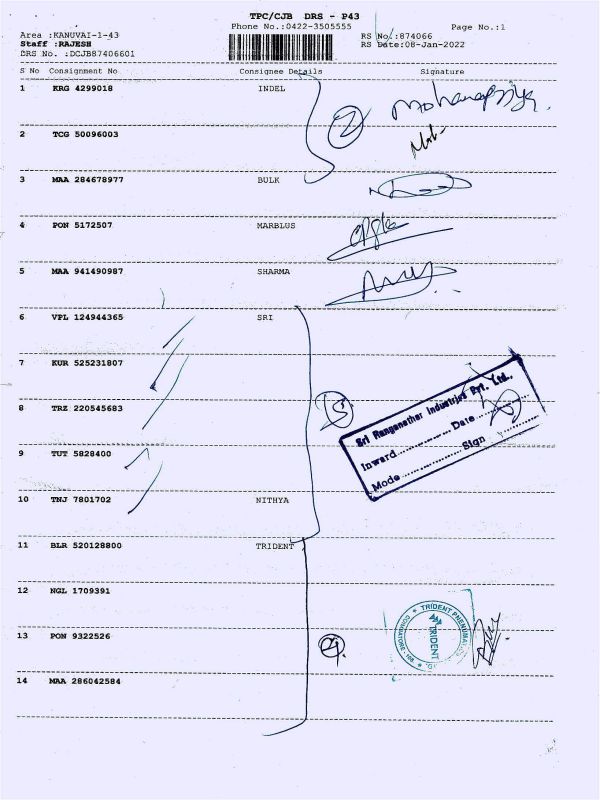 TPC/CJB DRS - P43
Phone No.:0422-3505555 Page No.:1
Area :KANUVAI-1-43 RS No.:874066
Staff :RAJESH RS Date:08-Jan-2022
DRS No. :DCJB87406601
S No Consignment No Consignee Details Signature
1 KRG 4299018 INDEL
2
2 TCG 50096003
3 MAA 284678977 BULK
4 PON 5172507 MARBLUS
5 MAA 941490987 SHARMA
6 VPL 124944365 SRI
7 KUR 525231807
8 TRZ 220545683
5
Sri Ranganathar Industries Pvt. Ltd.,
Inward............ Date............
Mode............ Sign............
9 TUT 5828400
10 TNJ 7801702 NITHYA
11 BLR 520128800 TRIDENT
12 NGL 1709391
TRIDENT PNEUMATICS
TRIDENT
COIMBATORE
13 PON 9322526
4
14 MAA 286042584